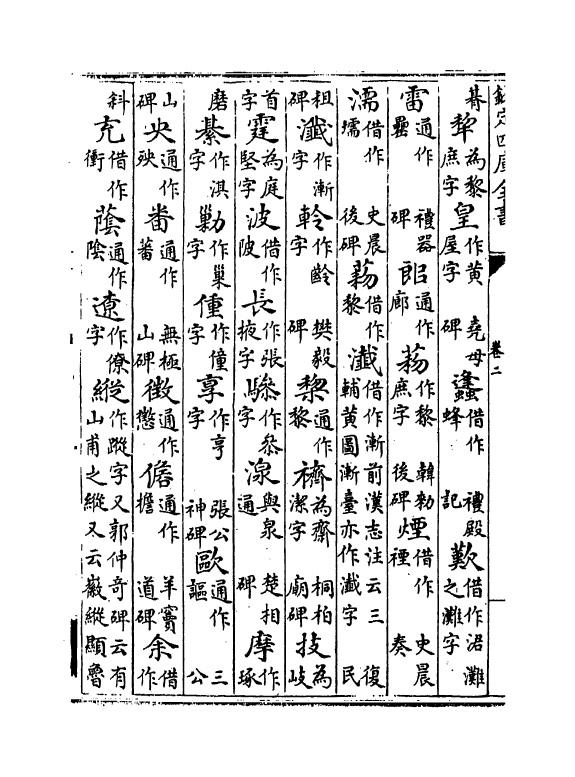 欽定四庫全書
卷二
朞 犂為黎庶字 皇作黃屋字 堯母碑 蠭借作蜂 禮殿記 歎借作涒灘之灘字
雷通作罍 禮器碑 郎通作廊 作黎庶字 韓勑後碑 煙借作禋 史晨奏
濡借作 史晨後碑 借作黎 瀸借作漸前漢志注云三輔黃圖漸臺亦作瀸字 復民
租碑 瀸作漸字 軨作齡字 樊毅碑 棃通作黎 為齋潔字 桐柏廟碑 技為岐
首字 霆為庭堅字 波借作陂 長作張掖字 驂作叅字 湶與泉通 楚相碑 摩作琢
磨 綦作淇字 勦作巢字 作僮字 享作亨字 張公神碑 歐通作謳 三公
山碑 央通作殃 畨通作蕃 無極山碑 徵通作懲 儋通作擔 羊竇道碑 余借作
斜 充借作衝 蔭通作陰 遼作僚字 縱作蹤字又郭仲奇碑云有山甫之縱又云徽縱顯魯